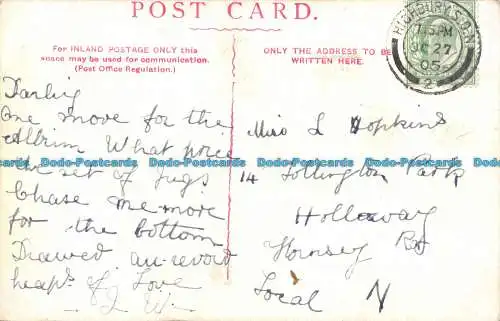 POST CARD.
For INLAND POSTAGE ONLY this
space may be used for communication.
(Post Office Regulation.)
ONLY THE ADDRESS TO BE
WRITTEN HERE.
HIGHBURY.S.O.N.
7.15PM
27
05
Darling
One more for the
Album What price
the set of jugs
Chase me more
for the bottom
Drawer au-revoir
heaps of Love
J W
Miss L Hopkins
14 Tollington Park
Holloway
Hornsey Rd
Local N
Dodo-Postcards Dodo-Postcards Dodo-Postcards Dodo-Postcards Dodo-Postcards